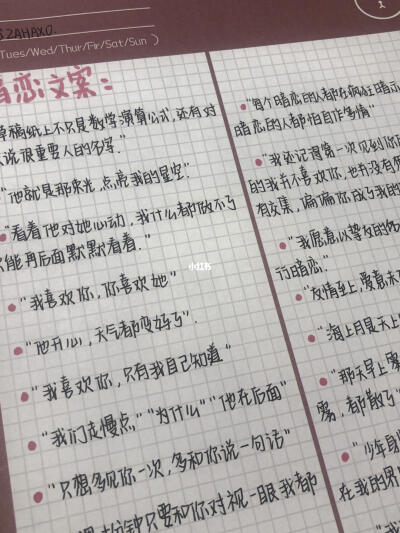 ZAHAXO.
Tues/Wed/Thur/Fir/Sat/Sun )
1
暗恋文案：
草稿纸上不只是数学演算公式，还有对
人说很重要人的名字."
"他就是那束光，点亮我的星空"
"看着他对她心动，我什么都做不了
只能再后面默默看着."
"我喜欢你，你喜欢她"
"他开心，天气都变好了".
"我喜欢你，只有我自己知道"
"我们走慢点""为什么""他在后面"
"只想多见你一次，多和你说一句话"
分钟只要和你对视一眼我都
"每个暗恋的人都在疯狂暗示
暗恋的人都怕自作多情"
"我还记得第一次见到你
的我并不喜欢你，也并没有
有交集，偏偏你成了我的
"我愿意以挚友的
行暗恋."
"友情至上，爱意未
"海上月是天上
"那天早上
雾，都散了
"少年身
在我的界
小红书